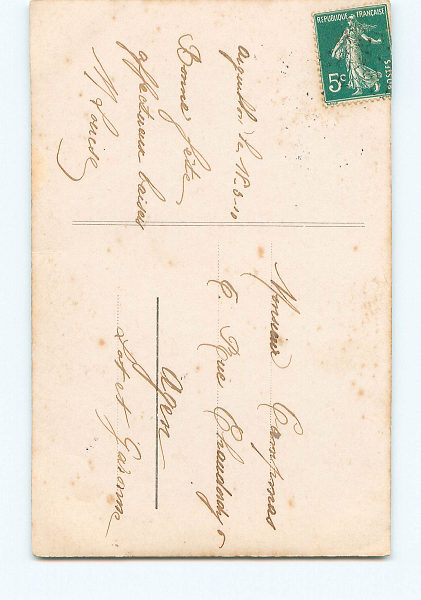 Aiguillon le 18-3-10
Bonne fête
affectueux baisers
M Louise
Monsieur Campmas
6. Rue Chaudordy 6
Agen
Lot et Garonne
REPUBLIQUE FRANÇAISE
5c
POSTES